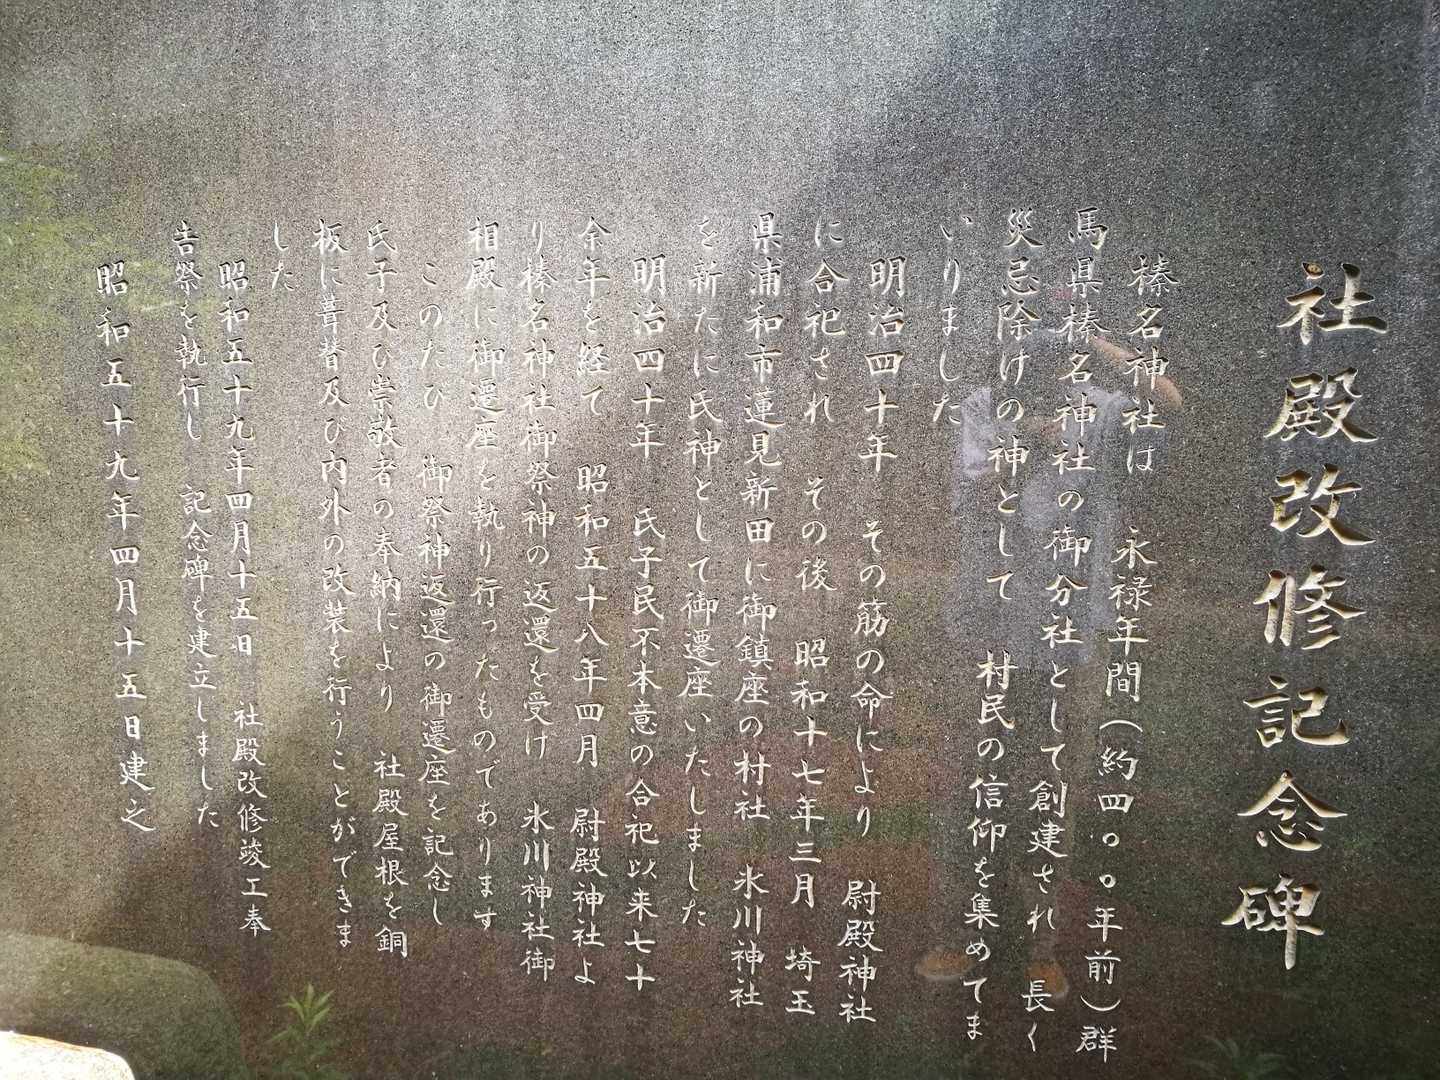 社殿改修記念碑
榛名神社は　永禄年間（約四〇〇年前）群
馬県榛名神社の御分社として創建され　長く
災忌除けの神として　村民の信仰を集めてま
いりました
明治四十年　その筋の命により　尉殿神社
に合祀され　その後　昭和十七年三月　埼玉
県浦和市蓮見新田に御鎮座の村社　氷川神社
を新たに氏神として御遷座いたしました
明治四十年　氏子民不本意の合祀以来七十
余年を経て　昭和五十八年四月　尉殿神社よ
り榛名神社御祭神の返還を受け　氷川神社御
相殿に御遷座を執り行ったものであります
このたび　御祭神返還の御遷座を記念し
氏子及び崇敬者の奉納により　社殿屋根を銅
板に葺替及び内外の改装を行うことができま
した
昭和五十九年四月十五日　社殿改修竣工奉
告祭を執行し　記念碑を建立しました
昭和五十九年四月十五日建之